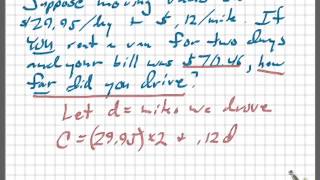 Suppose moving
$29.95/day + $.12/mile. If
you rent a van for two days
and your bill was $70.46, how
far did you drive?
Let d= miles we drove
C = (29.95)×2 + .12d